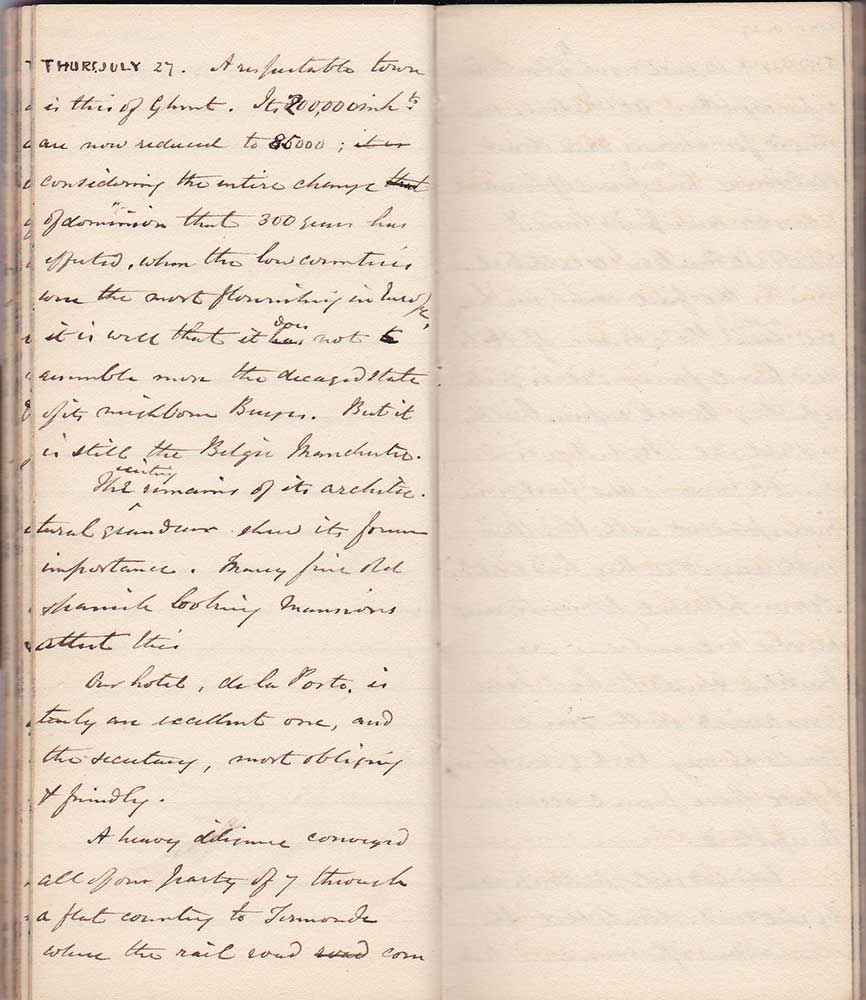 THURS, JULY 27. A respectable town
is this of Ghent. Its 200,000 inhts
are now reduced to 85000; it is
considering the entire change that
of dominion that 300 years has
effected, when the low countries
were the most flourishing in Europe,
it is well that it has does not to
resemble more the decayed state
of its neighbour Bruges. But it
is still the Belgic Manchester.
The existing remains of its architec-
tural grandeur shew its former
importance. Many fine old
spanish looking mansions
attest this
Our hotel, de la Poste, is
truly an excellent one, and
the secretary, most obliging
& friendly.
A heavy diligence conveyed
all of our party of 7 through
a flat country to Termonde
where the rail road road com